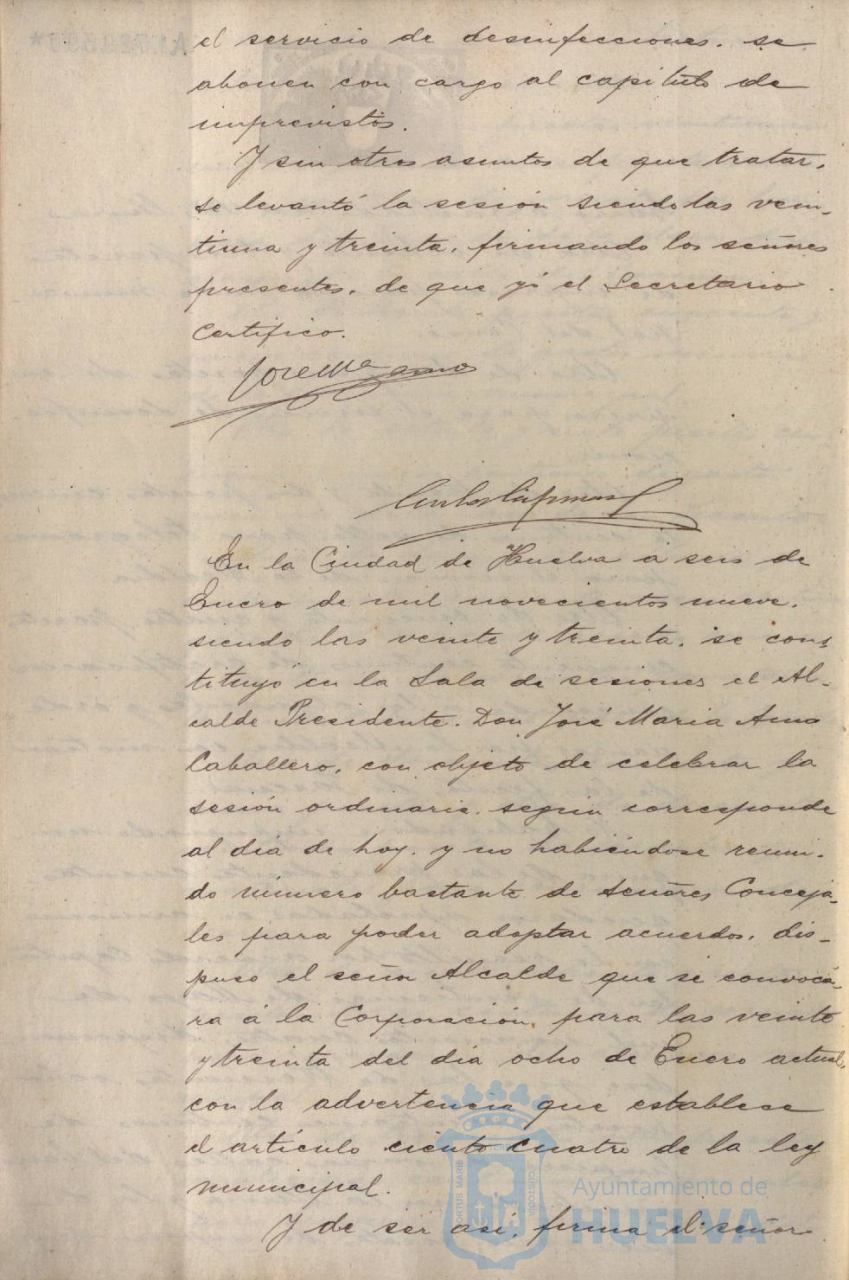 el servicio de desinfecciones. se
abonen con cargo al capítulo de
imprevistos.
Y sin otros asuntos de que tratar.
se levantó la sesión siendo las vein-
tiuna y treinta. firmando los señores
presentes. de que yó el Secretario
certifico.
José Mª Amo
En la Ciudad de Huelva á seis de
Enero de mil novecientos nueve.
siendo las veinte y treinta. se cons
tituyó en la Sala de sesiones el Al-
calde Presidente. Don José Maria Amo
Caballero. con objeto de celebrar la
sesión ordinaria. segun corresponde
al día de hoy. y no habiéndose reuni-
do número bastante de señores Conceja-
les para poder adoptar acuerdos. dis-
puso el señor Alcalde que se convocá-
ra á la Corporación. para las veinte
y treinta del día ocho de Enero actual.
con la advertencia que establece
el artículo ciento cuatro de la ley
municipal.
Y de ser asi. firma el señor
Ayuntamiento de
HUELVA